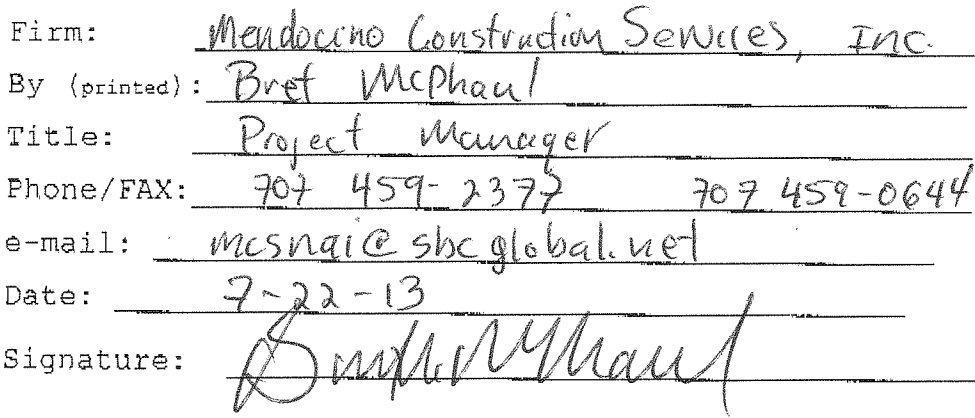 Firm: Mendocino Construction Services, Inc.
By (printed): Bret McPhaul
Title: Project Manager
Phone/FAX: 707 459-2377 707 459-0644
e-mail: mcsnai@sbcglobal.net
Date: 7-22-13
Signature: